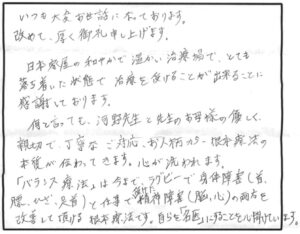 いつも大変お世話になっております。
改めて、厚く御礼申し上げます。
日本家屋の和やかで温かい治療場で、とても
落ち着いた状態で治療を受けることが出来ることに
感謝しております。
何と言っても、河野先生と先生のお母様の優しく、
親切で、丁寧なご対応、お人柄から根本療法の
本気が伝わってきます。心が洗われます。
「バランス療法」は今まで、ラグビーで身体障害(首、
腰、ひざ、足首)と仕事で精神障害(脳、心)の両者を
改善して頂ける根本療法です。自らを「名医」にすることを心掛けています。